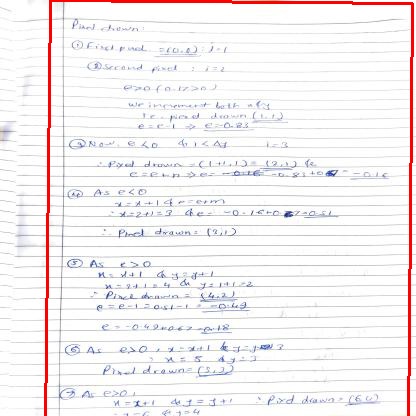 Pixel drawn:
① First pixel = (0,0) : i=1
② Second pixel : i=2
e>0 (0.17>0)
we increment both x & y
i.e. pixel drawn (1,1)
e = e-1 ⇒ e=-0.83
③ Now e<0 & i<Δx i=3
∴ Pixel drawn = (1+1,1) = (2,1) &
e = e+m ⇒ e= -0.83+0.67 = -0.16
④ As e<0
x = x+1 & e = e+m
∴ x=2+1=3 & e= -0.16+0.67=0.51
∴ Pixel drawn = (3,1)
⑤ As e>0
x = x+1 & y=y+1
x = 3+1=4 & y=1+1=2
∴ Pixel drawn = (4,2)
e = e-1 = 0.51-1 = -0.49
e = -0.49+0.67=0.18
⑥ As e>0, x=x+1 & y=y 3
∴ x=5 & y=3
Pixel drawn = (5,3)
⑦ As e>0,
x = x+1 & y=y+1 ∴ Pixel drawn = (6,4)
∴ x=6 & y=4